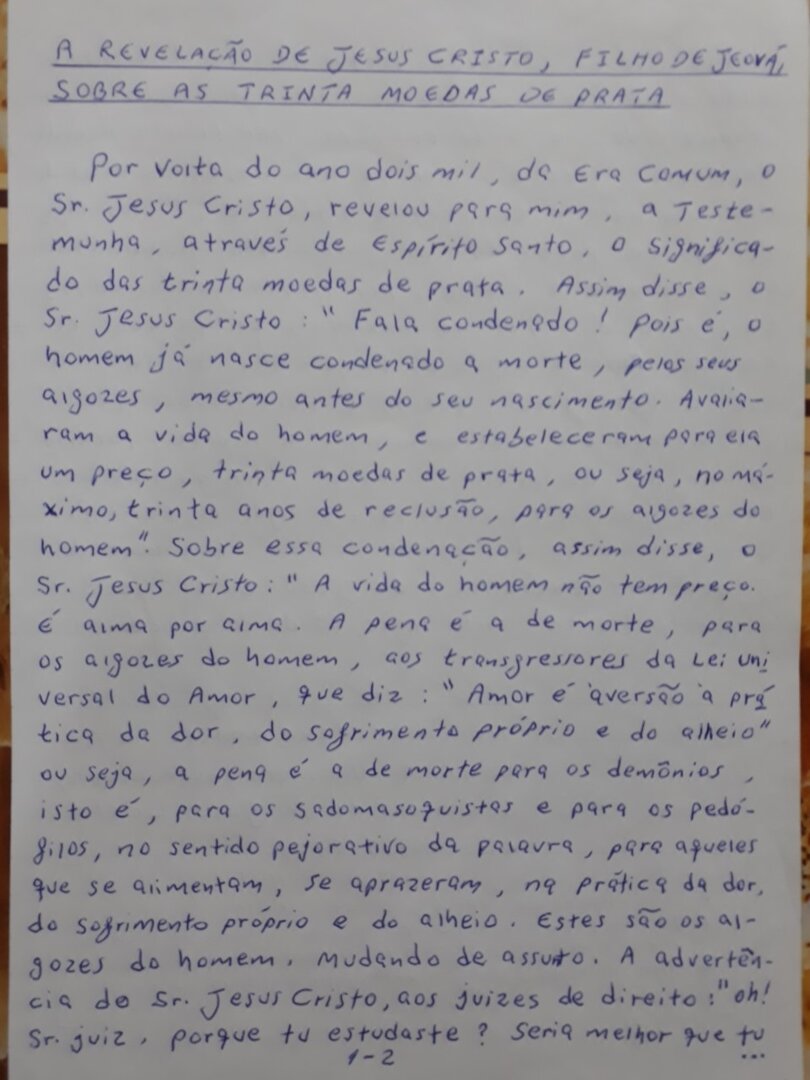 A REVELAÇÃO DE JESUS CRISTO, FILHO DE JEOVÁ,
SOBRE AS TRINTA MOEDAS DE PRATA
Por volta do ano dois mil, da Era Comum, o
Sr. Jesus Cristo, revelou para mim, a Teste-
munha, através de Espírito Santo, o significa-
do das trinta moedas de prata. Assim disse, o
Sr. Jesus Cristo: "Fala condenado! Pois é, o
homem já nasce condenado a morte, pelos seus
algozes, mesmo antes do seu nascimento. Avalia-
ram a vida do homem, e estabeleceram para ela
um preço, trinta moedas de prata, ou seja, no má-
ximo, trinta anos de reclusão, para os algozes do
homem". Sobre essa condenação, assim disse, o
Sr. Jesus Cristo: "A vida do homem não tem preço.
É alma por alma. A pena é a de morte, para
os algozes do homem, aos transgressores da Lei uni
versal do Amor, que diz: "Amor é aversão a prá
tica da dor, do sofrimento próprio e do alheio"
ou seja, a pena é a de morte para os demônios,
isto é, para os sadomasoquistas e para os pedó-
filos, no sentido pejorativo da palavra, para aqueles
que se alimentam, se aprazeram, na prática da dor,
do sofrimento próprio e do alheio. Estes são os al-
gozes do homem. Mudando de assuto. A advertên-
cia do Sr. Jesus Cristo, aos juizes de direito: "oh!
Sr. juiz, porque tu estudaste? Seria melhor que tu
1-2 ...